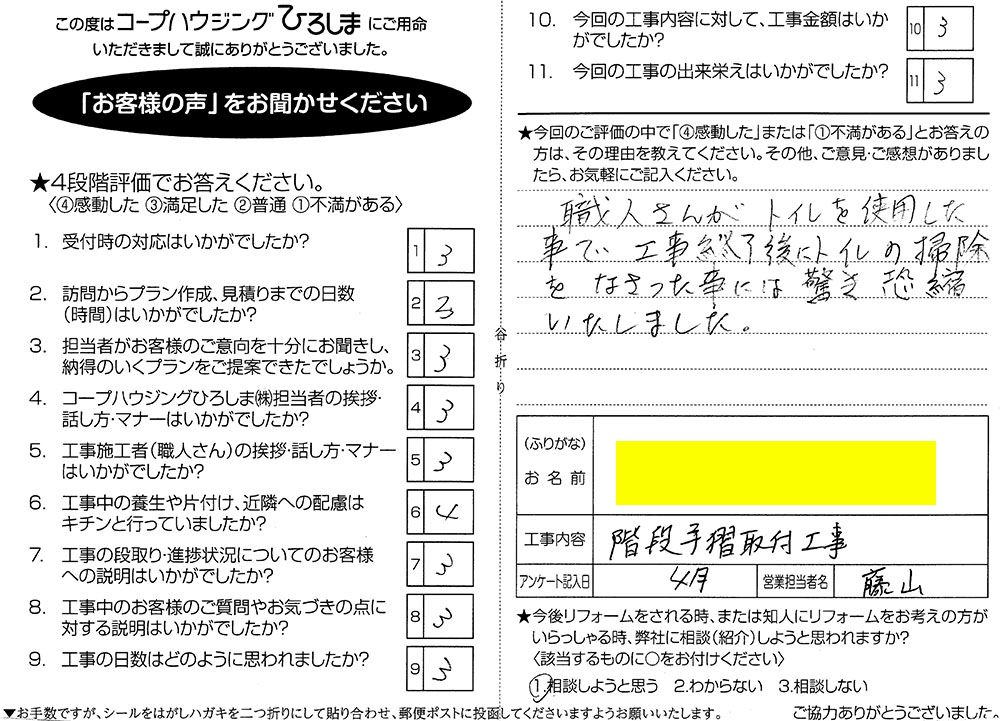 この度はコープハウジングひろしまにご用命
いただきまして誠にありがとうございました。
「お客様の声」をお聞かせください
★4段階評価でお答えください。
〈④感動した ③満足した ②普通 ①不満がある〉
1. 受付時の対応はいかがでしたか?
1 3
2. 訪問からプラン作成、見積りまでの日数
(時間)はいかがでしたか?
2 3
3. 担当者がお客様のご意向を十分にお聞きし、
納得のいくプランをご提案できたでしょうか。
3 3
4. コープハウジングひろしま㈱担当者の挨拶・
話し方・マナーはいかがでしたか?
4 3
5. 工事施工者(職人さん)の挨拶・話し方・マナー
はいかがでしたか?
5 3
6. 工事中の養生や片付け、近隣への配慮は
キチンと行っていましたか?
6 4
7. 工事の段取り・進捗状況についてのお客様
への説明はいかがでしたか?
7 3
8. 工事中のお客様のご質問やお気づきの点に
対する説明はいかがでしたか?
8 3
9. 工事の日数はどのように思われましたか?
9 3
▼お手数ですが、シールをはがしハガキを二つ折りにして貼り合わせ、郵便ポストに投函してくださいますようお願いいたします。
谷折り
10. 今回の工事内容に対して、工事金額はいか
がでしたか?
10 3
11. 今回の工事の出来栄えはいかがでしたか?
11 3
★今回のご評価の中で「④感動した」または「①不満がある」とお答えの
方は、その理由を教えてください。その他、ご意見・ご感想がありまし
たら、お気軽にご記入ください。
職人さんが トイレを使用した
事で 工事終了後にトイレの掃除
を なさった事には 驚き 恐縮
いたしました。
(ふりがな)
お名前
工事内容 階段手摺取付工事
アンケート記入日 4月 営業担当者名 藤山
★今後リフォームをされる時、または知人にリフォームをお考えの方が
いらっしゃる時、弊社に相談(紹介)しようと思われますか?
〈該当するものに○をお付けください〉
1.相談しようと思う 2.わからない 3.相談しない
ご協力ありがとうございました